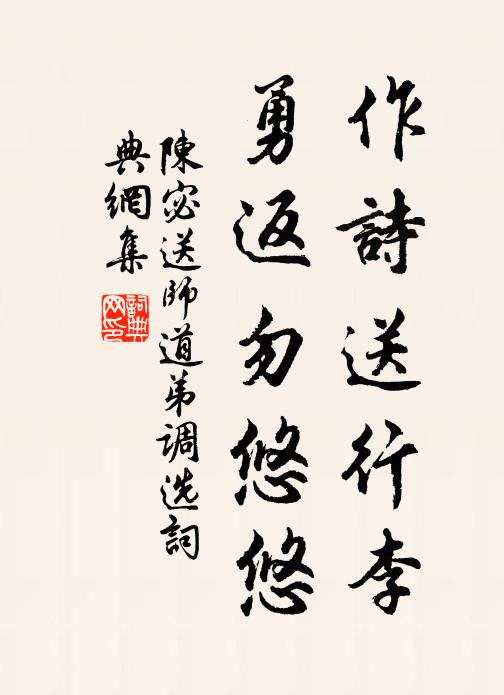 作詩送行李
勇返勿悠悠
陳宓送師道弟調选詞
典網集
詞典网印